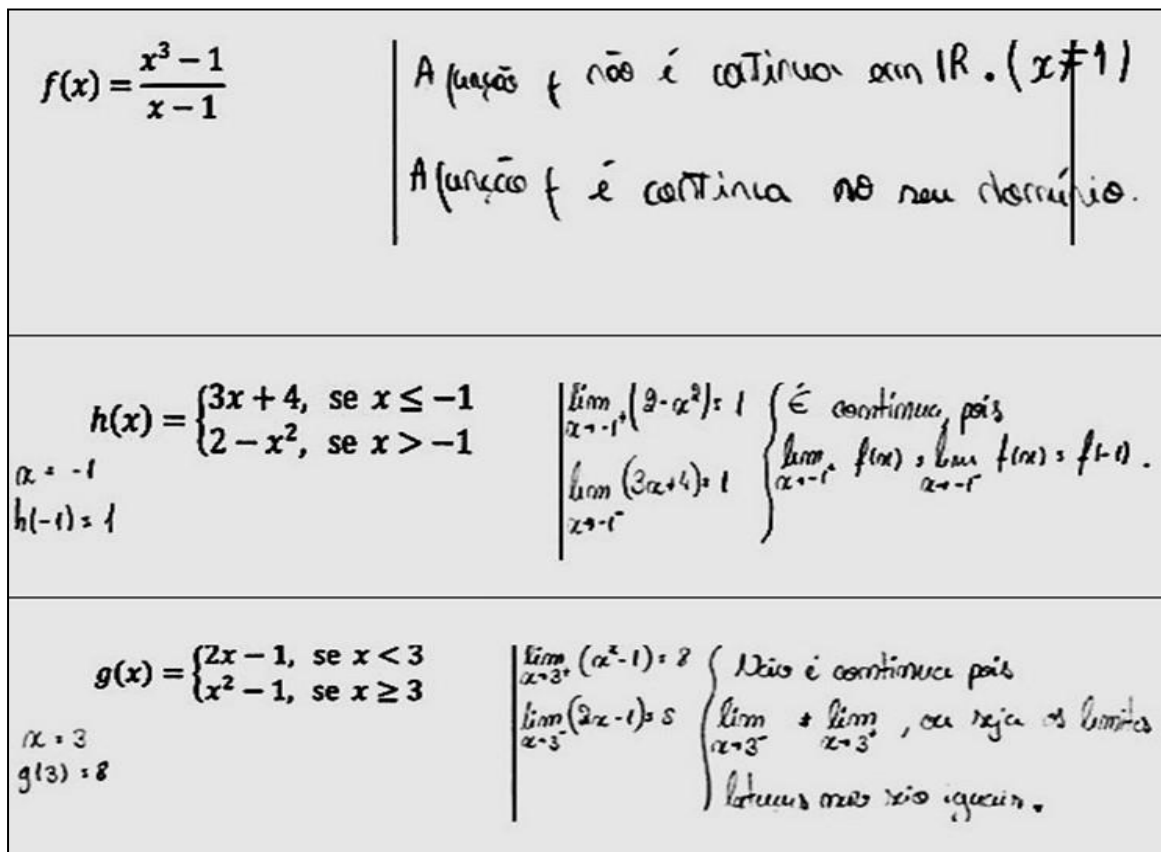 f(x) = \frac{x^3 - 1}{x - 1}
A função f não é continua em IR. (x ≠ 1)
A função f é continua no seu domínio.
h(x) = \begin{cases} 3x + 4, & \text{se } x \leq -1 \\ 2 - x^2, & \text{se } x > -1 \end{cases}
x = -1
h(-1) = 1
\lim_{x \to -1^+} (2 - x^2) = 1
\lim_{x \to -1^-} (3x + 4) = 1
É contínua, pois
\lim_{x \to -1^+} f(x) = \lim_{x \to -1^-} f(x) = f(-1).
g(x) = \begin{cases} 2x - 1, & \text{se } x < 3 \\ x^2 - 1, & \text{se } x \geq 3 \end{cases}
x = 3
g(3) = 8
\lim_{x \to 3^+} (x^2 - 1) = 8
\lim_{x \to 3^-} (2x - 1) = 5
Não é contínua pois
\lim_{x \to 3^-} ≠ \lim_{x \to 3^+}, ou seja os limites
laterais não são iguais.